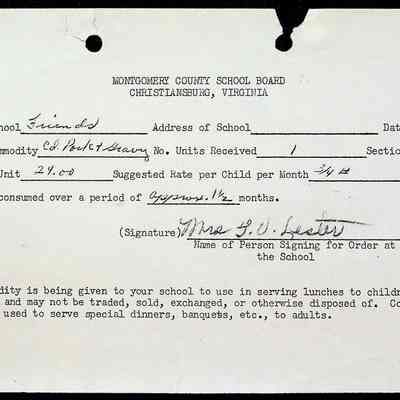 MONTGOMERY COUNTY SCHOOL BOARD
CHRISTIANSBURG, VIRGINIA
hool Friends Address of School Dat
mmodity Cd. Pork & Gravy No. Units Received 1 Section
Unit 24.00 Suggested Rate per Child per Month 3/4 #
consumed over a period of approx. 1½ months.
(Signature) Mrs F. V. Lester
Name of Person Signing for Order at
the School
dity is being given to your school to use in serving lunches to childr
and may not be traded, sold, exchanged, or otherwise disposed of. Co
used to serve special dinners, banquets, etc., to adults.